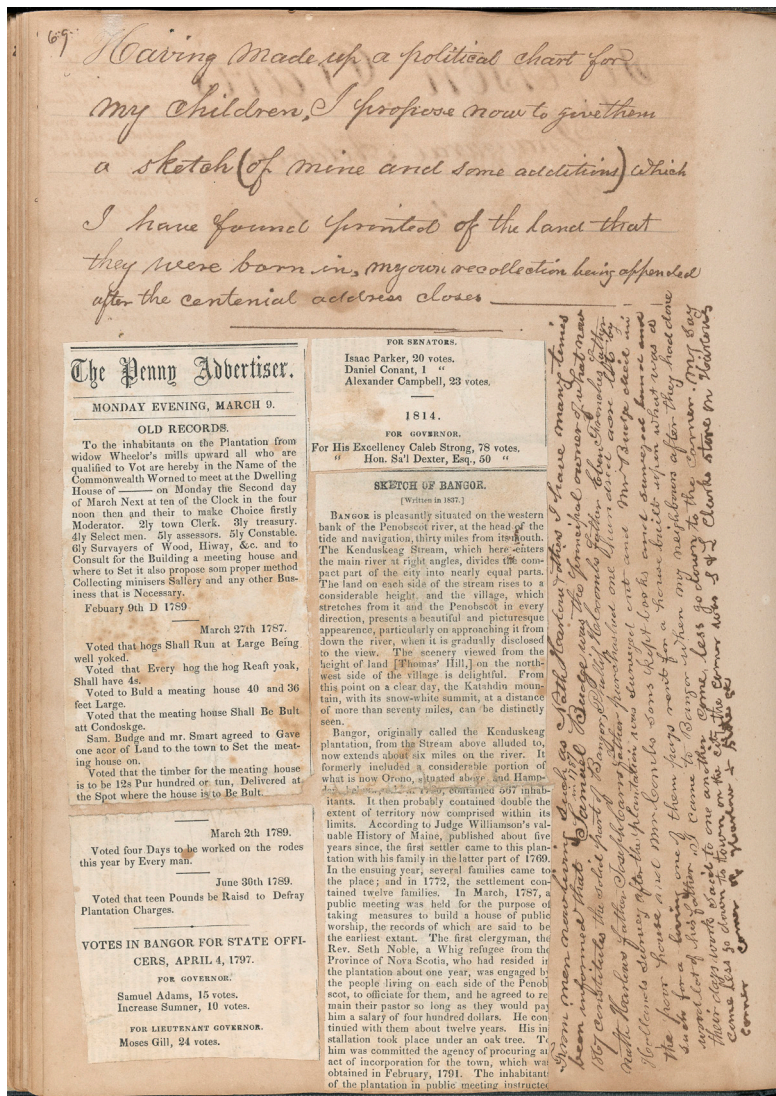 69
Having made up a political chart for
my children, I propose now to give them
a sketch (of mine and some additions) which
I have found printed of the land that
they were born in, my own recollection being appended
after the centenial address closes
The Penny Advertiser.
MONDAY EVENING, MARCH 9.
OLD RECORDS.
To the inhabitants on the Plantation from
widow Wheelor's mills upward all who are
qualified to Vot are hereby in the Name of the
Commonwealth Worned to meet at the Dwelling
House of —— on Monday the Second day
of March Next at ten of the Clock in the four
noon then and their to make Choice firstly
Moderator. 2ly town Clerk. 3ly treasury.
4ly Select men. 5ly assessors. 5ly Constable.
6ly Survayers of Wood, Hiway, &c. and to
Consult for the Building a meeting house and
where to Set it also propose som proper method
Collecting minisers Sallery and any other Bus-
iness that is Necessary.
Febuary 9th D 1789
March 27th 1787.
Voted that hogs Shall Run at Large Being
well yoked.
Voted that Every hog the hog Reaft yoak,
Shall have 4s.
Voted to Buld a meating house 40 and 36
feet Large.
Voted that the meating house Shall Be Bult
att Condoskge.
Sam. Budge and mr. Smart agreed to Gave
one acor of Land to the town to Set the meat-
ing house on.
Voted that the timber for the meating house
is to be 12s Pur hundred or tun, Delivered at
the Spot where the house is to Be Bult.
March 2th 1789.
Voted four Days to be worked on the rodes
this year by Every man.
June 30th 1789.
Voted that teen Pounds be Raisd to Defray
Plantation Charges.
VOTES IN BANGOR FOR STATE OFFI-
CERS, APRIL 4, 1797.
FOR GOVERNOR.
Samuel Adams, 15 votes.
Increase Sumner, 10 votes.
FOR LIEUTENANT GOVERNOR.
Moses Gill, 24 votes.
FOR SENATORS.
Isaac Parker, 20 votes.
Daniel Conant, 1 "
Alexander Campbell, 23 votes.
1814.
FOR GOVERNOR.
For His Excellency Caleb Strong, 78 votes.
" Hon. Sa'l Dexter, Esq., 50 "
SKETCH OF BANGOR.
[Written in 1837.]
BANGOR is pleasantly situated on the western
bank of the Penobscot river, at the head of the
tide and navigation, thirty miles from its mouth.
The Kenduskeag Stream, which here enters
the main river at right angles, divides the com-
pact part of the city into nearly equal parts.
The land on each side of the stream rises to a
considerable height, and the village, which
stretches from it and the Penobscot in every
direction, presents a beautiful and picturesque
appearance, particularly on approaching it from
down the river, when it is gradually disclosed
to the view. The scenery viewed from the
height of land [Thomas' Hill,] on the north-
west side of the village is delightful. From
this point on a clear day, the Katahdin moun-
tain, with its snow-white summit, at a distance
of more than seventy miles, can be distinctly
seen.
Bangor, originally called the Kenduskeag
plantation, from the Stream above alluded to,
now extends about six miles on the river. It
formerly included a considerable portion of
what is now Orono, situated above, and Hamp-
contained 567 inhab-
itants. It then probably contained double the
extent of territory now comprised within its
limits. According to Judge Williamson's val-
uable History of Maine, published about five
years since, the first settler came to this plan-
tation with his family in the latter part of 1769.
In the ensuing year, several families came to
the place; and in 1772, the settlement con-
tained twelve families. In March, 1787, a
public meeting was held for the purpose of
taking measures to build a house of public
worship, the records of which are said to be
the earliest extant. The first clergyman, the
Rev. Seth Noble, a Whig refugee from the
Province of Nova Scotia, who had resided in
the plantation about one year, was engaged by
the people living on each side of the Penob
scot, to officiate for them, and he agreed to re
main their pastor so long as they would pay
him a salary of four hundred dollars. He con
tinued with them about twelve years. His in
stallation took place under an oak tree. To
him was committed the agency of procuring an
act of incorporation for the town, which was
obtained in February, 1791. The inhabitants
of the plantation in public meeting instructed
From men now living such as Nath Harlow I have many times
been informed that Samuel Budge was the principal owner of what now
constitutes the Solid part of Bangor
Nath Harlows father Joseph Carrs father purchased one hundred acre lots by
Hollands survey after the plantation was surveyed out and Mr Budge died in
the poor house and Mr Coombs sons kept books and surveyed land and
such for a living one of them pays rent for a house built upon what was a
wood lot of his father. I came to Bangor when my neighbours after they had done
their days work said to one another Come, less go down to the Corner. My say
come less go down to town, on the corner was I & L Clarks store on Harlows
corner